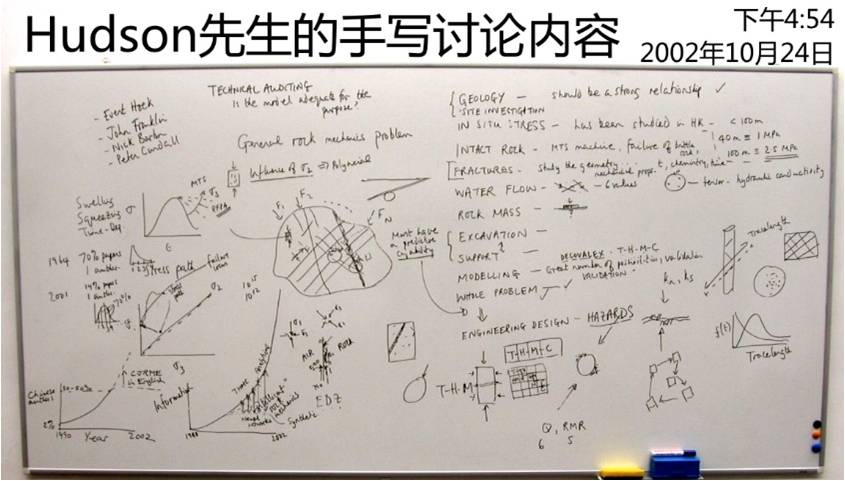 Hudson先生的手写讨论内容
下午4:54
2002年10月24日
- Evert Hoek
- John Franklin
- Nick Barton
- Peter Cundall
TECHNICAL AUDITING
Is the model adequate for the
purpose?
General rock mechanics problem
Influence of σ2 ⇒ Polyaxial
MTS
σ3
F1
F2
FN
Swelling
Squeezing
Time-Dep
σ
ε
1964 70% papers
1 author
2001 14% papers
1 author
70%
Stress path
failure
locus
σ2
σ3
10^15
10^12
must have
a predictive
capability
{ GEOLOGY — should be a strong relationship ✓
SITE INVESTIGATION
IN SITU STRESS - has been studied in HK - <100m
40m ≡ 1 MPa
100m ≡ 2.5 MPa
INTACT ROCK - MTS machine, failure of brittle rock
FRACTURES - Study the geometry... mechanical props, t, chemistry, time
WATER FLOW - 6 values
tensor - hydraulic conductivity
ROCK MASS -
{ EXCAVATION -
SUPPORT? -
DECOVALEX - T-H-M-C
MODELLING - Great number of possibilities, validation
VALIDATION
WHOLE PROBLEM ✓
ENGINEERING DESIGN - HAZARDS
kn, ks
Tracelength
f(t)
Tracelength
T-H-M-C
T-H-M
Q, RMR
6 5
AIR
ROCK
EDZ
Chinese
authors
2%
1990
Year
2002
↑ CJRME
in English
Information
Time
Intelligent
rock
mechanics
neural
networks
Synthetic
1988
2002